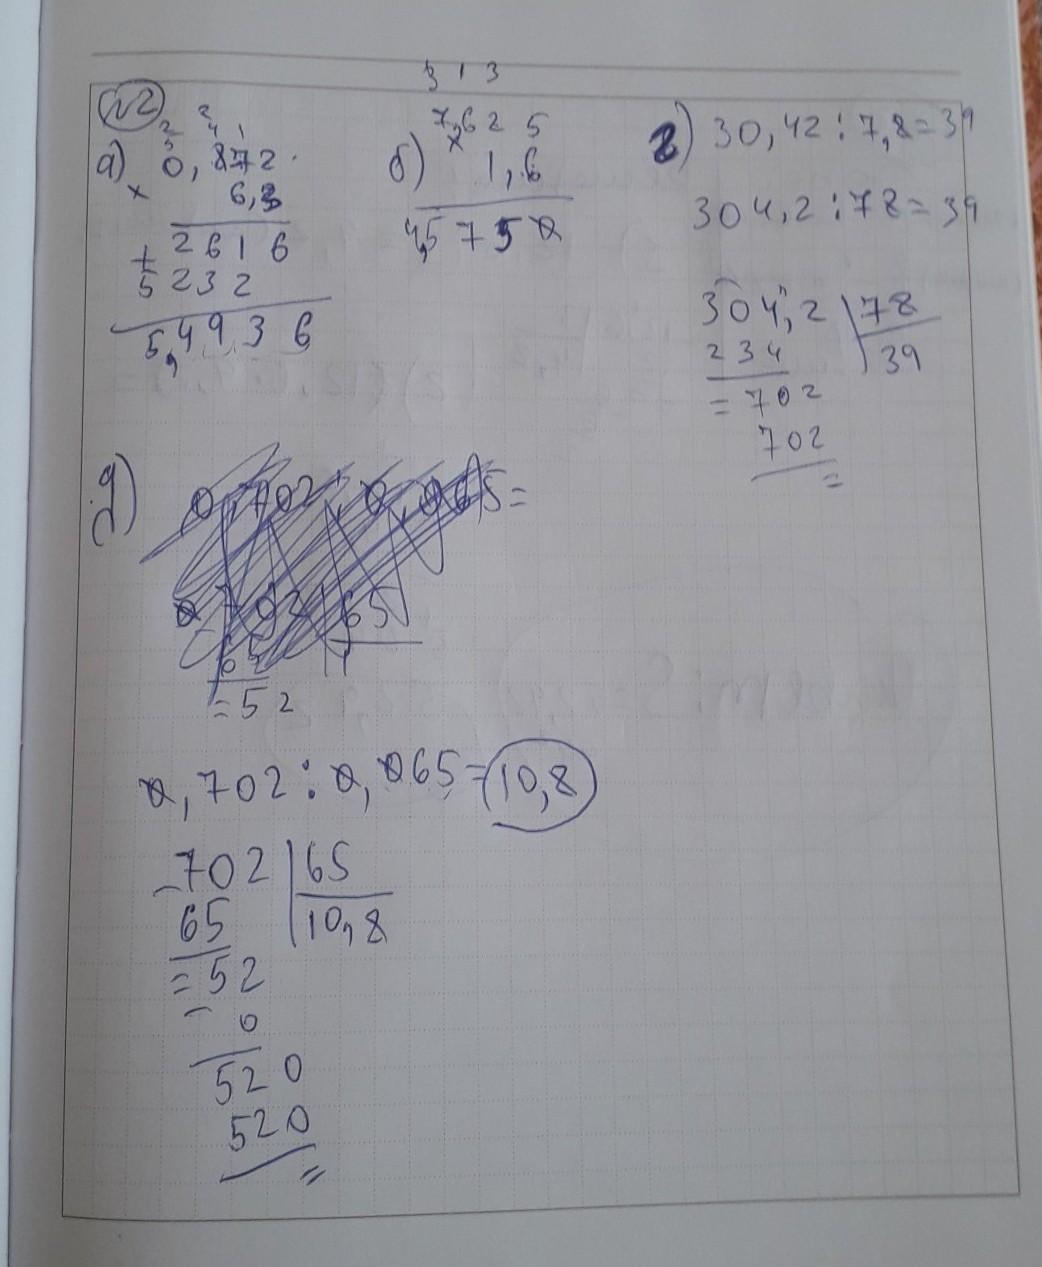 №2
а) 0,872
× 6,3
+ 2616
5232
5,4936
3 1 3
б) 7,625
× 1,6
4,5750
г) 30,42 : 7,8 = 39
304,2 : 78 = 39
304,2 | 78
234 | 39
= 702
702
=
д)
0,702 : 0,065 =
65
= 52
0,702 : 0,065 = 10,8
- 702 | 65
65 | 10,8
= 52
- 0
520
520
=